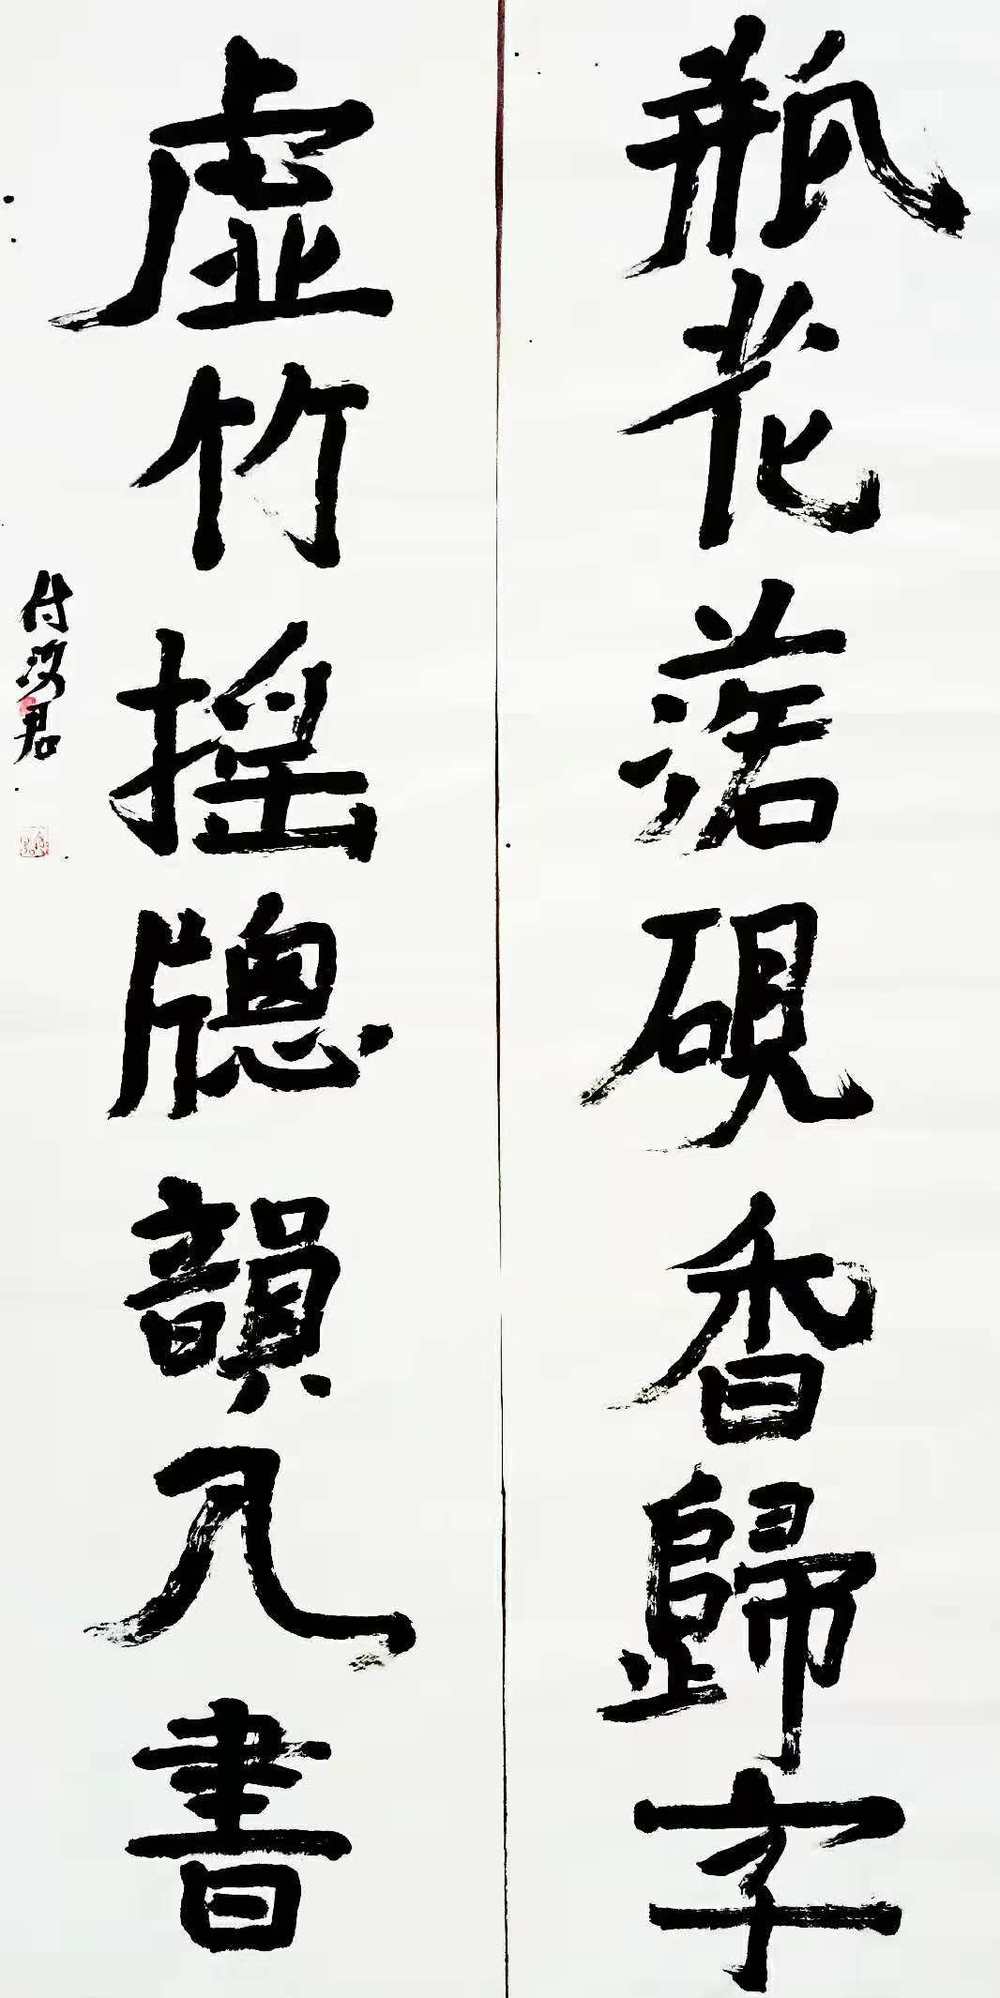 瓶花落硯香歸字
虛竹搖牕韻入書
付汝君